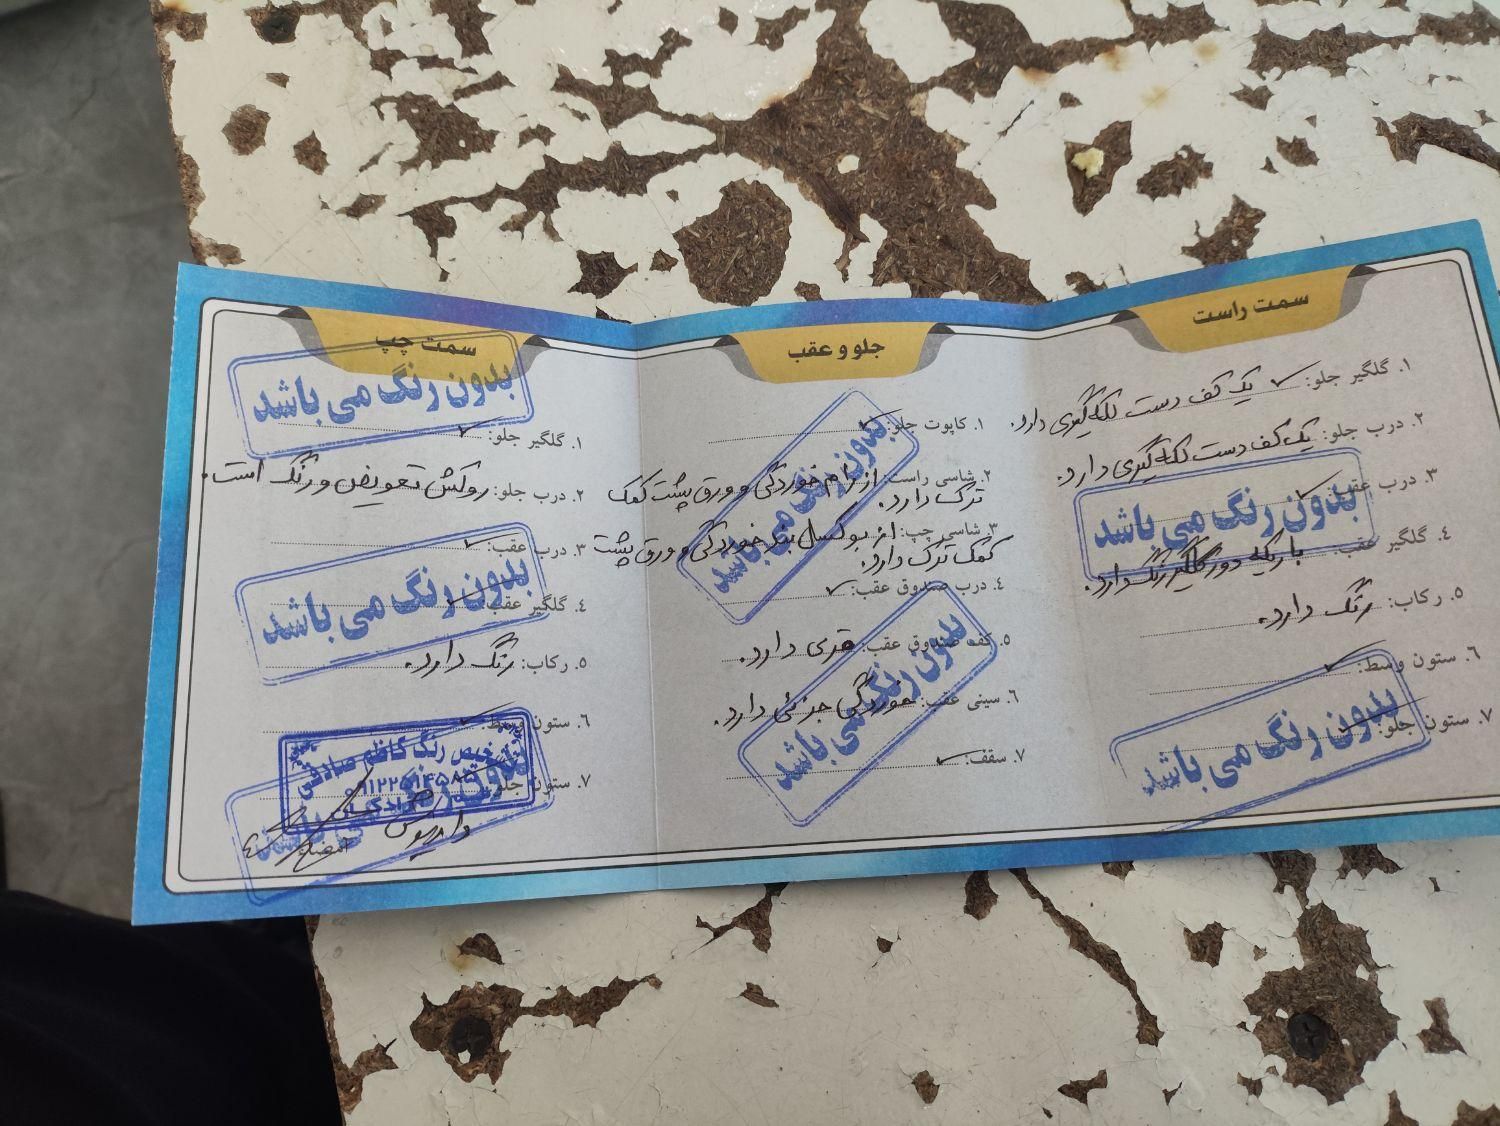 سمت راست
۱. گلگیر جلو: ✓ یک کف دست لکه‌گیری دارد.
۲. درب جلو: یک کف دست لکه‌گیری دارد.
۳. درب عقب: ✓
بدون رنگ می باشد
۴. گلگیر عقب: باریکه دور گلگیر رنگ دارد.
۵. رکاب: رنگ دارد.
۶. ستون وسط: ✓
۷. ستون جلو: ✓
بدون رنگ می باشد
جلو و عقب
۱. کاپوت جلو: ✓
۲. شاسی راست: از رام خوردگی و ورق پشت کمک
ترک دارد.
۳. شاسی چپ: از بوکسل بند خوردگی و ورق پشت
کمک ترک دارد.
بدون رنگ می باشد
۴. درب صندوق عقب: ✓
۵. کف صندوق عقب: قری دارد.
۶. سینی عقب: خوردگی جزئی دارد.
۷. سقف: ✓
بدون رنگ می باشد
سمت چپ
بدون رنگ می باشد
۱. گلگیر جلو: ✓
۲. درب جلو: روکش تعویض و رنگ است.
۳. درب عقب: ✓
۴. گلگیر عقب: ✓
بدون رنگ می باشد
۵. رکاب: رنگ دارد.
۶. ستون وسط: ✓
۷. ستون جلو:
تشخیص رنگ کاظم صادقی
بدون رنگ می باشد
داریوش